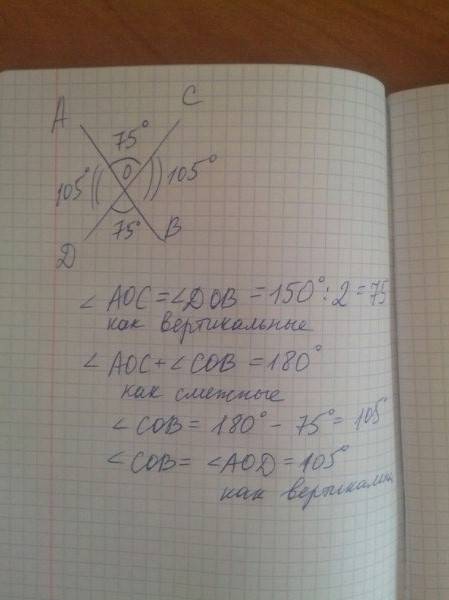 A C
75°
105° O 105°
75°
D B
∠ AOC = ∠DOB = 150° : 2 = 75
как вертикальные
∠ AOC + ∠COB = 180°
как смежные
∠ COB = 180° - 75° = 105
∠ COB = ∠AOD = 105°
как